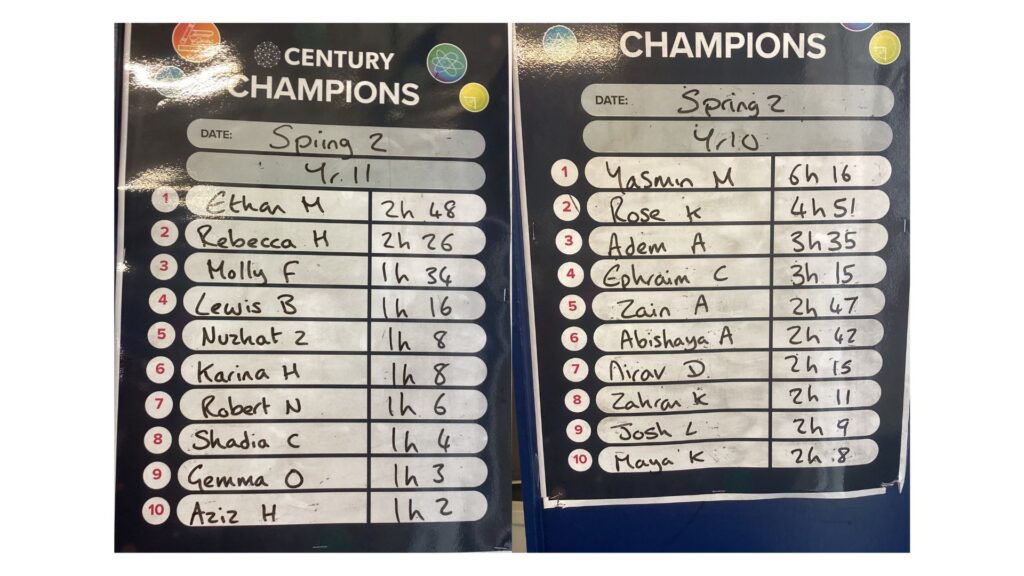 CENTURY
CHAMPIONS
DATE: Spiing 2
Yr.11
1 Ethan M 2h 48
2 Rebecca H 2h 26
3 Molly F 1h 34
4 Lewis B 1h 16
5 Nuzhat Z 1h 8
6 Karina H 1h 8
7 Robert N 1h 6
8 Shadia C 1h 4
9 Gemma O 1h 3
10 Aziz H 1h 2
CHAMPIONS
DATE: Spring 2
Yr10
1 Yasmin M 6h 16
2 Rose K 4h 51
3 Adem A 3h 35
4 Ephraim C 3h 15
5 Zain A 2h 47
6 Abishaya A 2h 42
7 Nirav D. 2h 15
8 Zahran K 2h 11
9 Josh L 2h 9
10 Maya K 2h 8